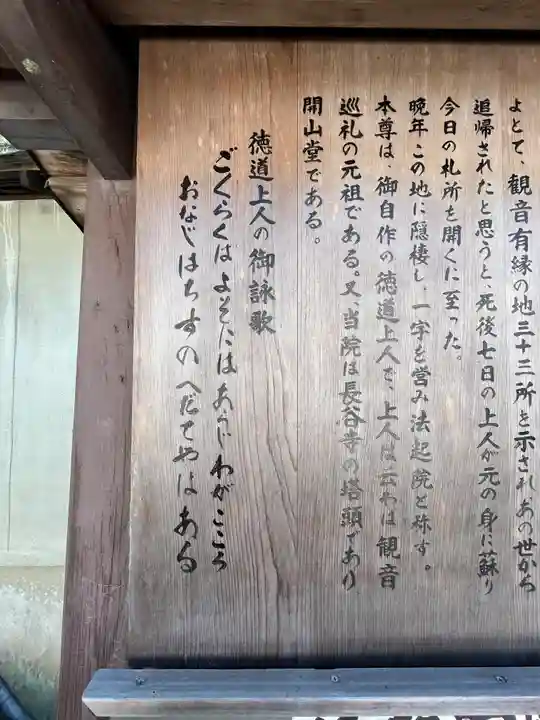 よとて、観音有縁の地三十三所を示されあの世から
追帰されたと思うと、死後七日の上人が元の身に蘇り
今日の札所を開くに至った。
晩年この地に隠棲し、一宇を営み法起院と称す。
本尊は、御自作の徳道上人で、上人は云わば観音
巡礼の元祖である。又、当院は長谷寺の塔頭であり
開山堂である。
徳道上人の御詠歌
ごくらくは よそにはあらじ わがこころ
おなじはちすの へだてやはある